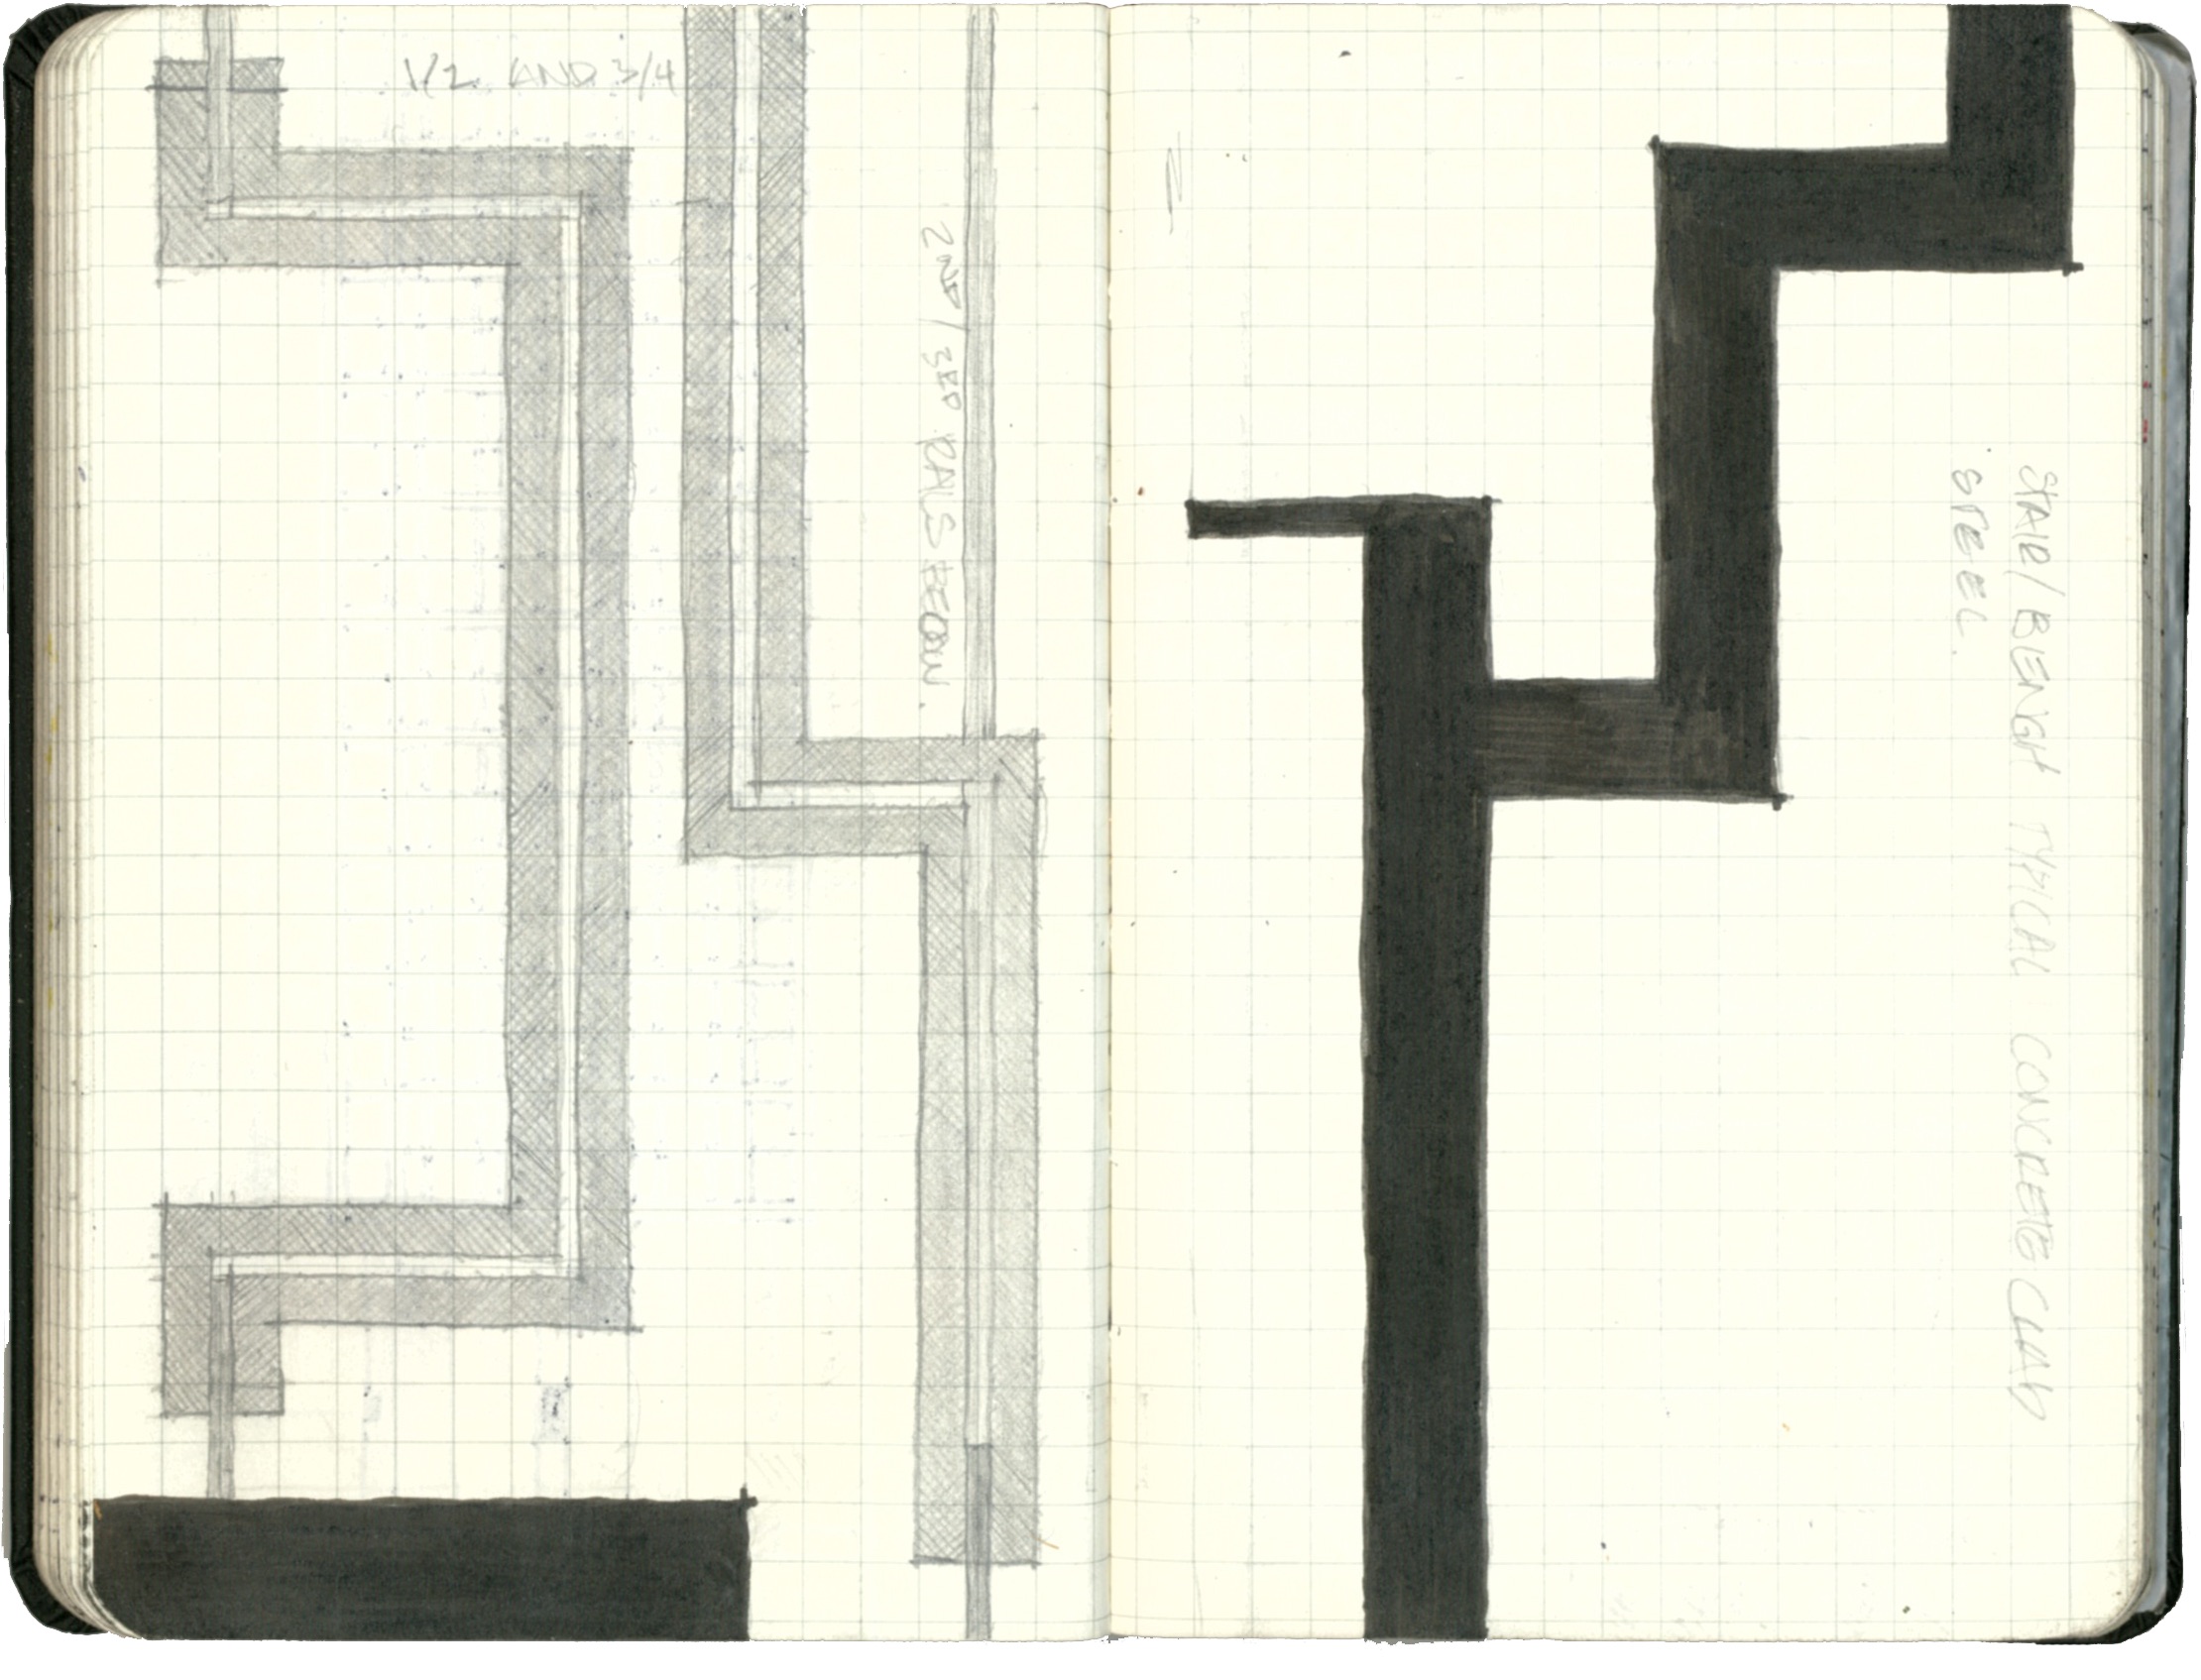 1/2 AND 3/4
2ND / 3RD RAILS BELOW.
STAIR/BENCH TYPICAL CONCRETE CLAD
STEEL.